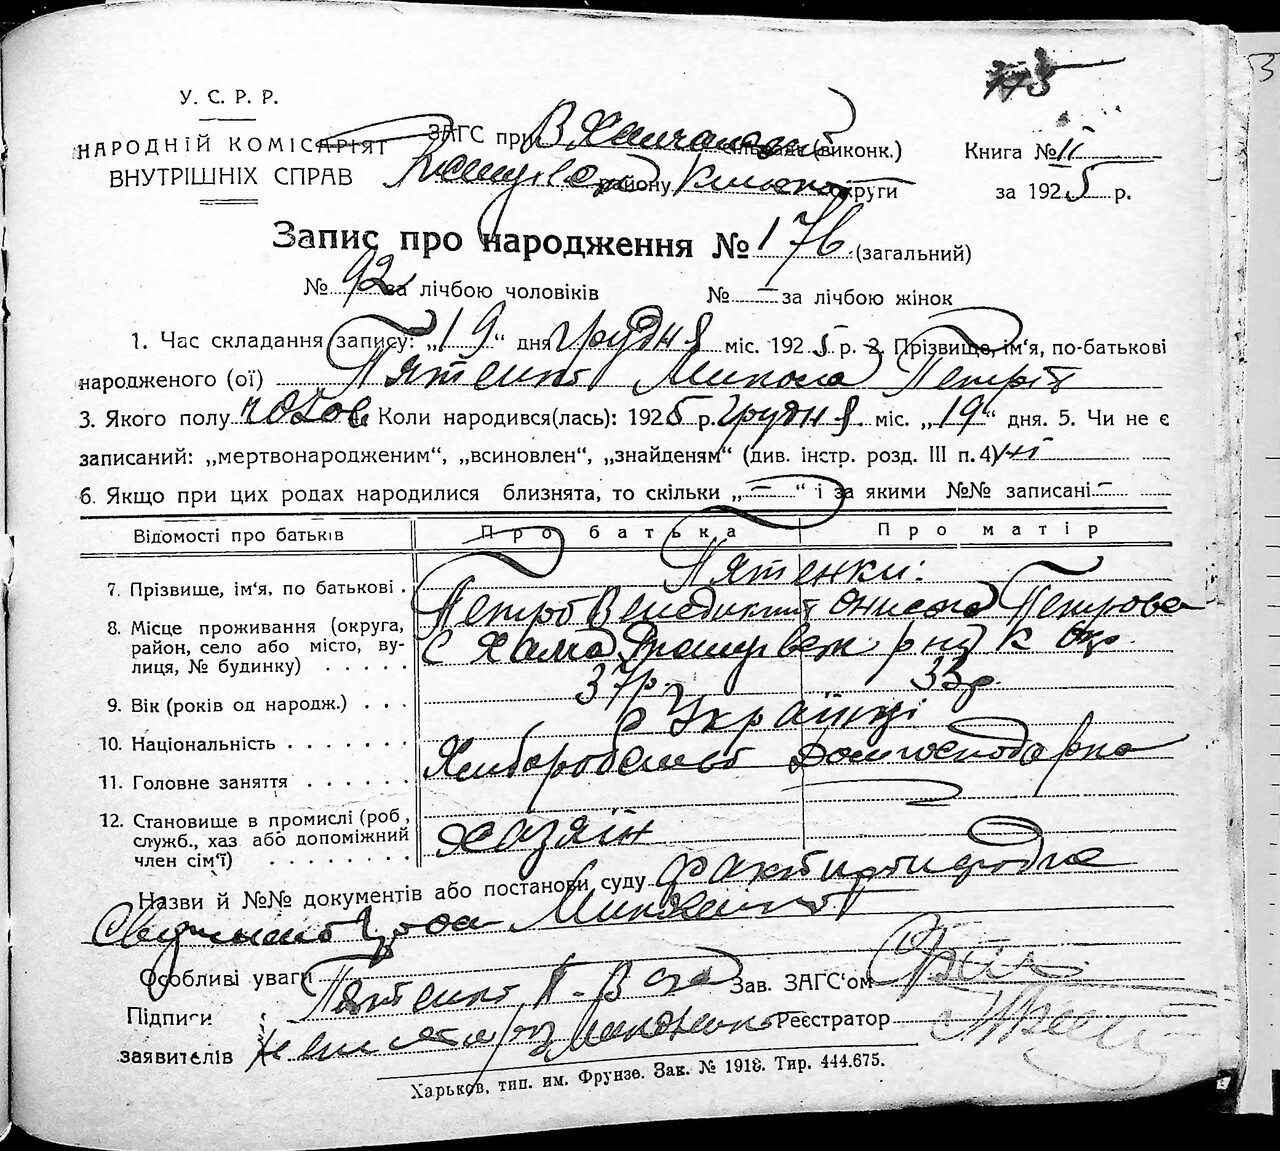 У. С. Р. Р.
НАРОДНІЙ КОМІСАРІЯТ
ВНУТРІШНІХ СПРАВ
ЗАГС при (виконк.)
району округи
Книга № II
за 1925 р.
Запис про народження № 176 (загальний)
№ 92 за лічбою чоловіків № — за лічбою жінок
1. Час складання запису: „19“ дня грудня міс. 1925 р. 2. Прізвище, ім‘я, по-батькові
народженого (ої) Пятенко Микола Петров
3. Якого полу чолов. Коли народився(лась): 1925 р. грудня міс. „19“ дня. 5. Чи не є
записаний: „мертвонародженим“, „всиновлен“, „знайденям“ (див. інстр. розд. III п. 4) ні
6. Якщо при цих родах народилися близнята, то скільки „—“ і за якими №№ записані —
Відомості про батьків Про батька Про матір
Пятенки:
7. Прізвище, ім‘я, по батькові . Петро Венедикт Онисія Петрова
8. Місце проживання (округа,
район, село або місто, ву-
лиця, № будинку) . . . . .
9. Вік (років од народж.) . . . 37 р. 33 р.
10. Національність . . . . . . . Українці
11. Головне заняття . . . . . . Хлібороб Домгосподарка
12. Становище в промислі (роб,
служб., хаз або допоміжний
член сім‘ї) . . . . . . . . хазяїн
Назви й №№ документів або постанови суду
Особливі уваги Пятенко П. В
Зав. ЗАГС‘ом
Підписи
заявителів
Реєстратор
Харьков, тип. им. Фрунзе. Зак. № 1918. Тир. 444.675.